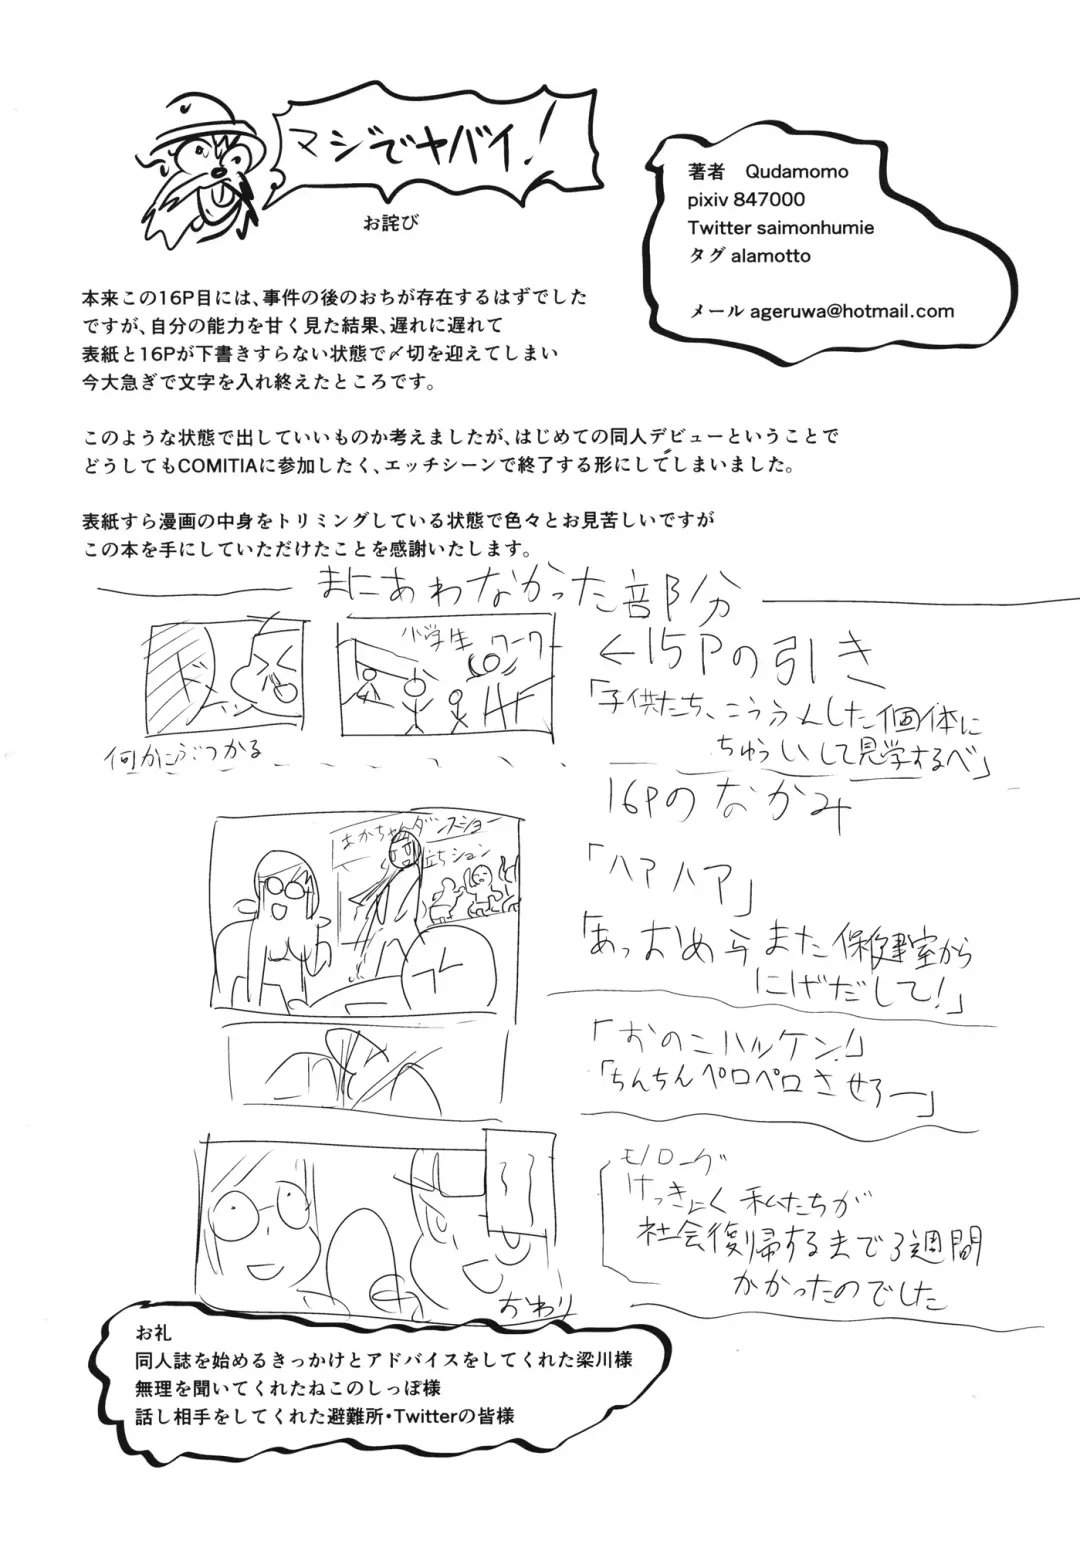 マジでヤバイ!
お詫び
著者　Qudamomo
pixiv 847000
Twitter saimonhumie
タグ alamotto
メール ageruwa@hotmail.com
本来この16P目には、事件の後のおちが存在するはずでした
ですが、自分の能力を甘く見た結果、遅れに遅れて
表紙と16Pが下書きすらない状態で〆切を迎えてしまい
今大急ぎで文字を入れ終えたところです。
このような状態で出していいものか考えましたが、はじめての同人デビューということで
どうしてもCOMITIAに参加したく、エッチシーンで終了する形にしてしまいました。
表紙すら漫画の中身をトリミングしている状態で色々とお見苦しいですが
この本を手にしていただけたことを感謝いたします。
まにあわなかった部分
ドーン
小学生 ワーワー
←15Pの引き
「子供たち、こうふんした個体に
ちゅういして見学するべ」
何かにぶつかる
16Pのなかみ
あかちゃんダンスショー
立ちション
「ハアハア」
「あっおめらまた保健室から
にげだして!」
「おのこハルケン!」
「ちんちんペロペロさせろー」
モノローグ
けっきょく私たちが
社会復帰するまで3週間
かかったのでした
おわり
お礼
同人誌を始めるきっかけとアドバイスをしてくれた梁川様
無理を聞いてくれたねこのしっぽ様
話し相手をしてくれた避難所・Twitterの皆様